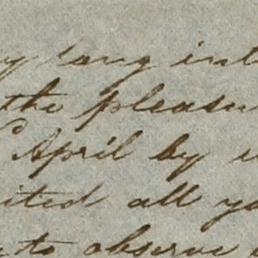 y long int
the pleasu
April by
ited all y
to observe